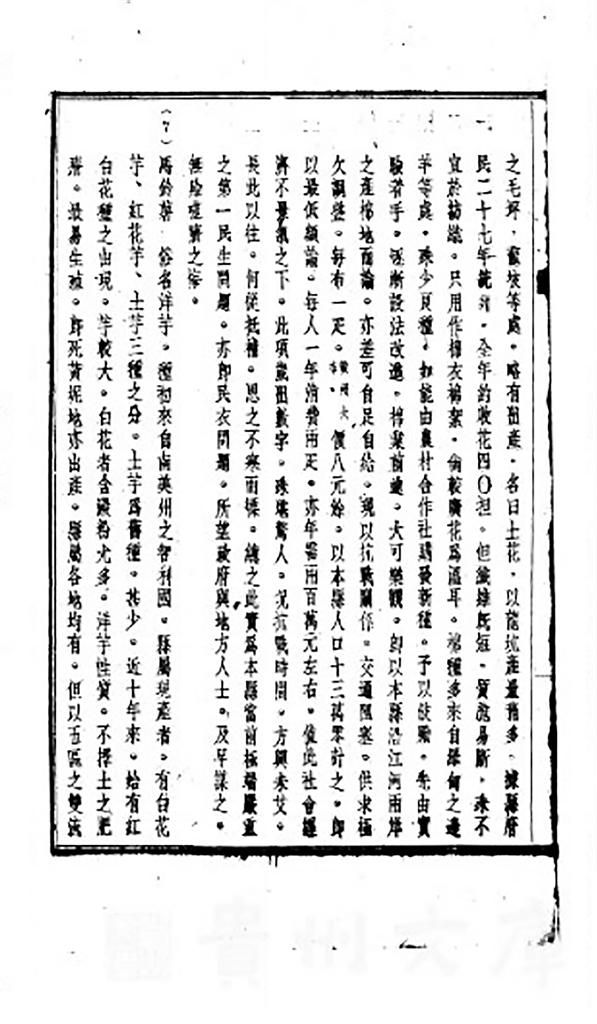 之毛坪，蘇坡等處，略有出產，名曰土花，以龍坑產量稍多，據縣府
民二十七年統計，全年約收花四〇担。但纖維既短，質脆易斷，殊不
宜於紡織。只用作棉衣棉絮，尚較廣花為溫耳。棉種多來自羅甸之邊
羊等處，殊少良種，如能由農村合作社購發新種，予以鼓勵，先由實
驗着手，逐漸設法改進，棉業前途，大可樂觀。即以本縣沿江河兩岸
之產棉地而論。亦差可自足自給。現以抗戰關係。交通阻塞。供求極
欠調整。每布一疋。價八元餘。以本縣人口十三萬零計之。即
以最低額論。每人一年消費兩疋。亦年需兩百萬元左右。值此社會經
濟不景氣之下。此項歲出數字。殊堪驚人。況抗戰時間。方興未艾。
長此以往。何從抵補。思之不寒而慄。總之此實為本縣當前極端嚴重
之第一民生問題。亦即民衣問題。所望政府與地方人士。及早謀之。
無貽噬臍之悔。
（7）馬鈴薯 俗名洋芋。種初來自南美州之智利國。縣屬現產者。有白花
芋、紅花芋、土芋三種之分。土芋為舊種。甚少。近十年來。始有紅
白花種之出現。芋較大。白花者含澱粉尤多。洋芋性質。不擇土之肥
瘠。最易生殖。即死黃坭地亦出產。縣屬各地均有。但以五區之雙流
貴州文庫